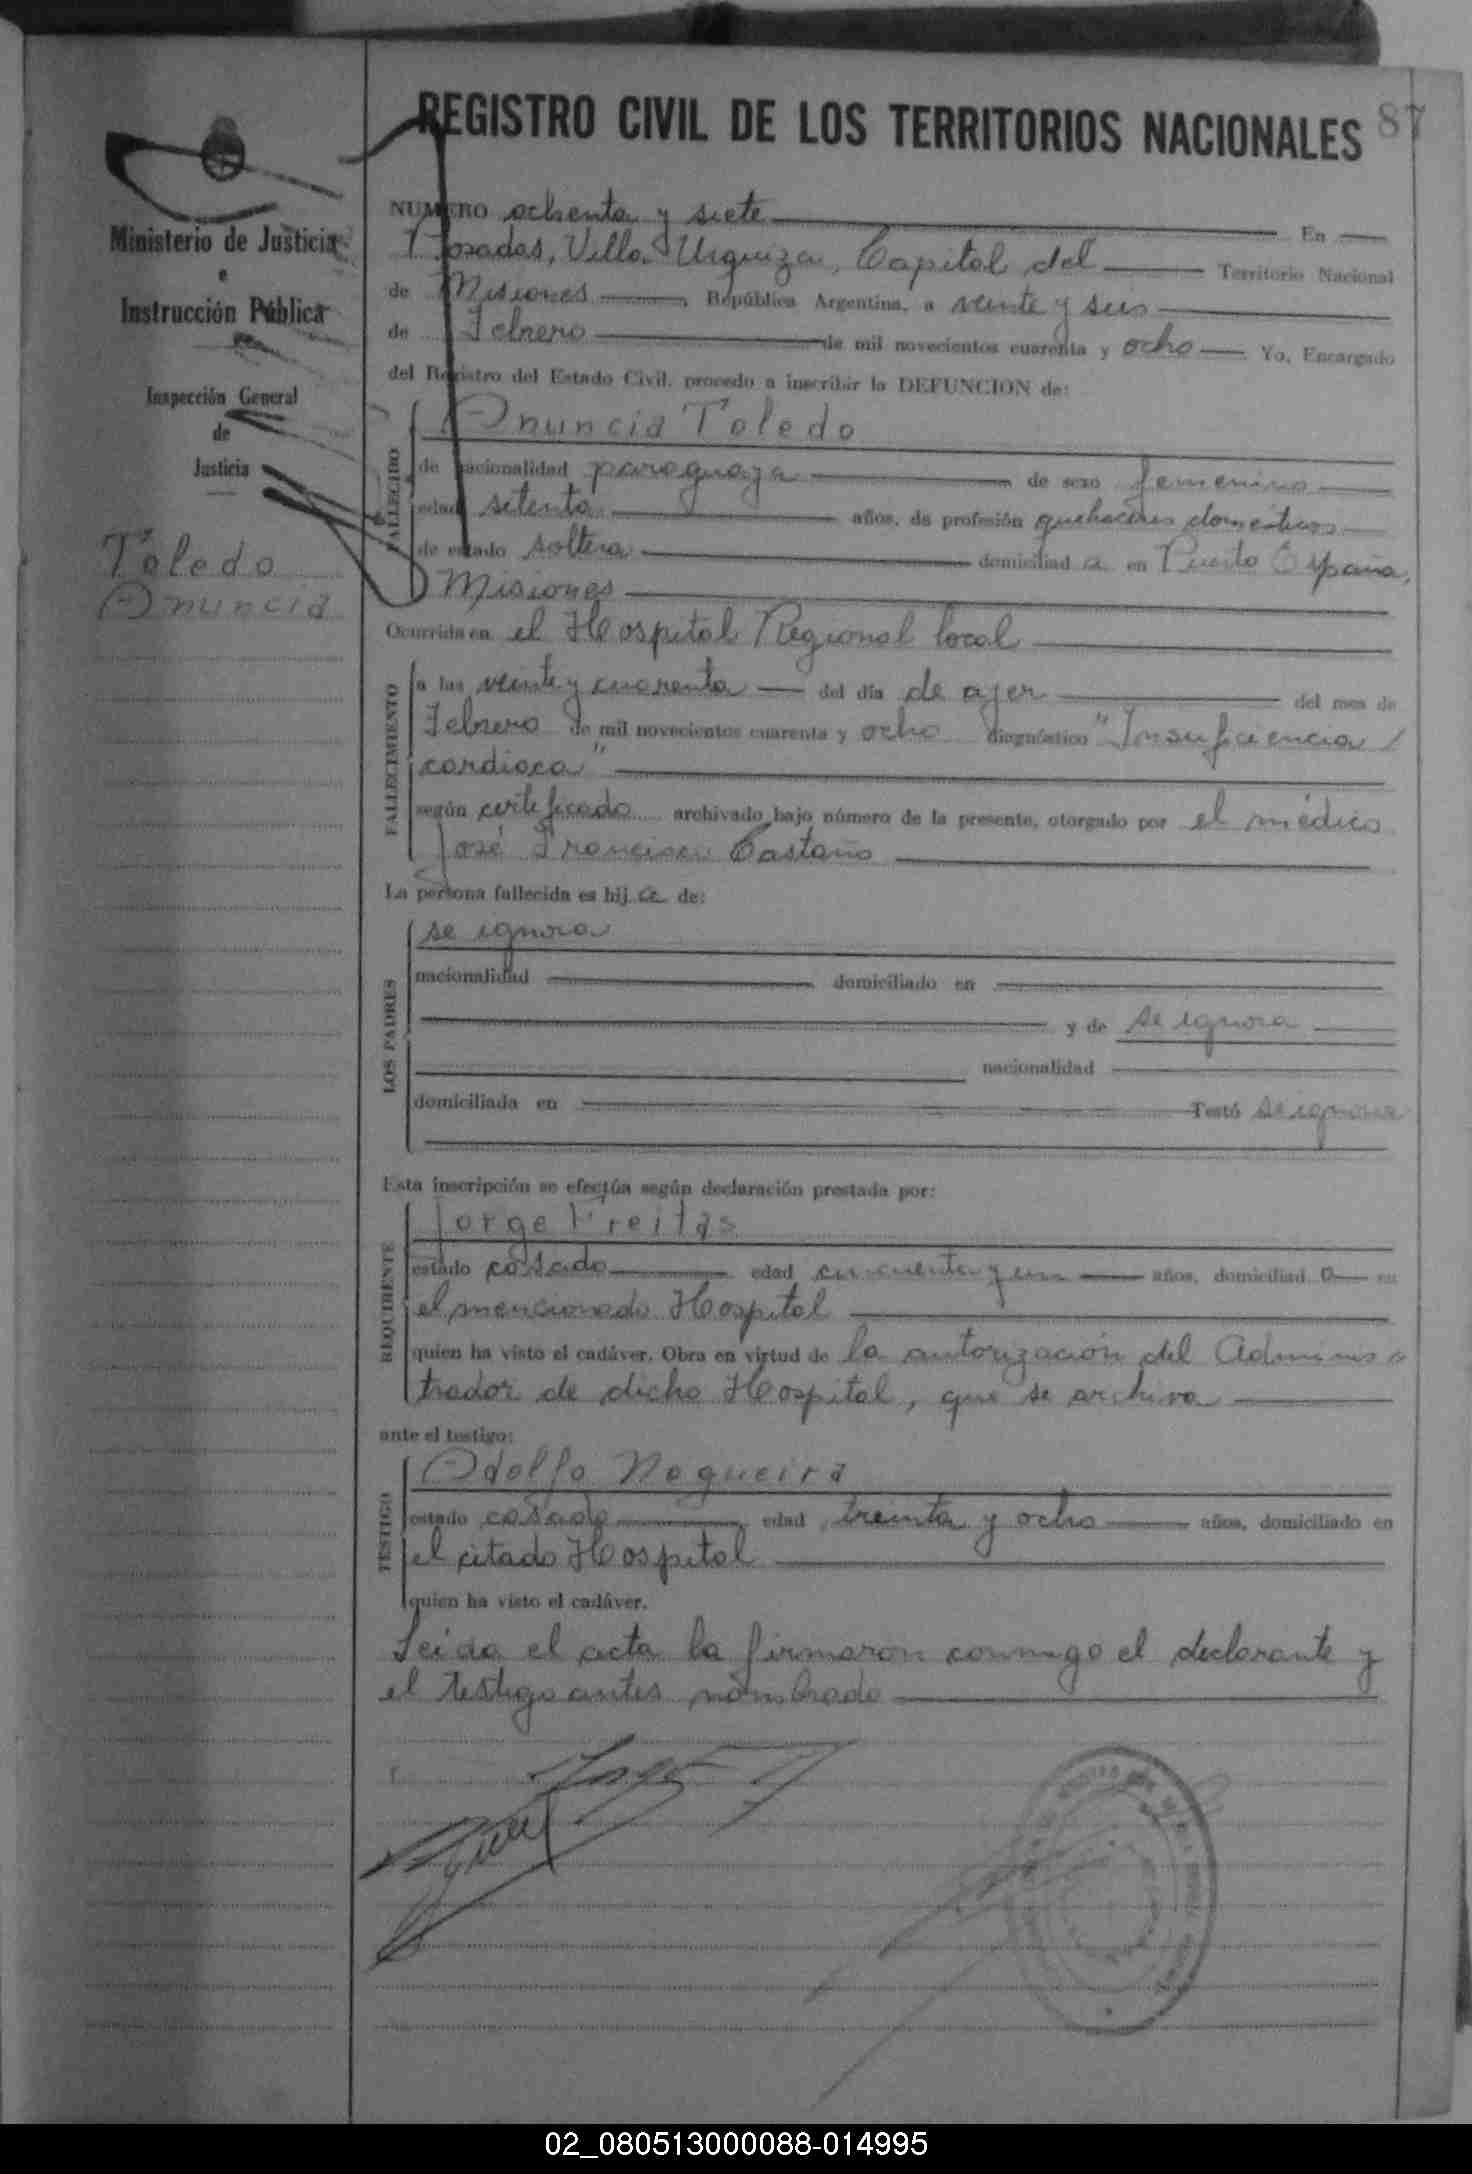 REGISTRO CIVIL DE LOS TERRITORIOS NACIONALES 87
Ministerio de Justicia
e
Instrucción Pública
Inspección General
de
Justicia
Toledo
Anuncia
NUMERO ochenta y siete En
Posadas, Villa Urquiza, Capital del Territorio Nacional
de Misiones, República Argentina, a veinte y seis
de Febrero de mil novecientos cuarenta y ocho Yo, Encargado
del Registro del Estado Civil, procedo a inscribir la DEFUNCION de:
FALLECIDO
Anuncia Toledo
de nacionalidad paraguaya de sexo femenino
edad setenta años, de profesión quehaceres domésticos
de estado soltera domiciliad a en Puerto España,
Misiones
Ocurrida en el Hospital Regional local
FALLECIMIENTO
a las veinte y cuarenta del día de ayer del mes de
Febrero de mil novecientos cuarenta y ocho diagnóstico "Insuficiencia
cardiaca"
según certificado archivado bajo número de la presente, otorgado por el médico
José Francisco Castaño
La persona fallecida es hij a de:
LOS PADRES
se ignora
nacionalidad domiciliado en
y de se ignora
nacionalidad
domiciliada en Testó se ignora
Esta inscripción se efectúa según declaración prestada por:
REQUIRENTE
Jorge Freitas
estado casado edad cincuenta y un años, domiciliad o en
el mencionado Hospital
quien ha visto el cadáver. Obra en virtud de la autorización del Adminis
trador de dicho Hospital, que se archiva
ante el testigo:
TESTIGO
Adolfo Nogueira
estado casado edad treinta y ocho años, domiciliado en
el citado Hospital
quien ha visto el cadáver.
Leída el acta la firmaron conmigo el declarante y
el testigo antes nombrado
02_080513000088-014995